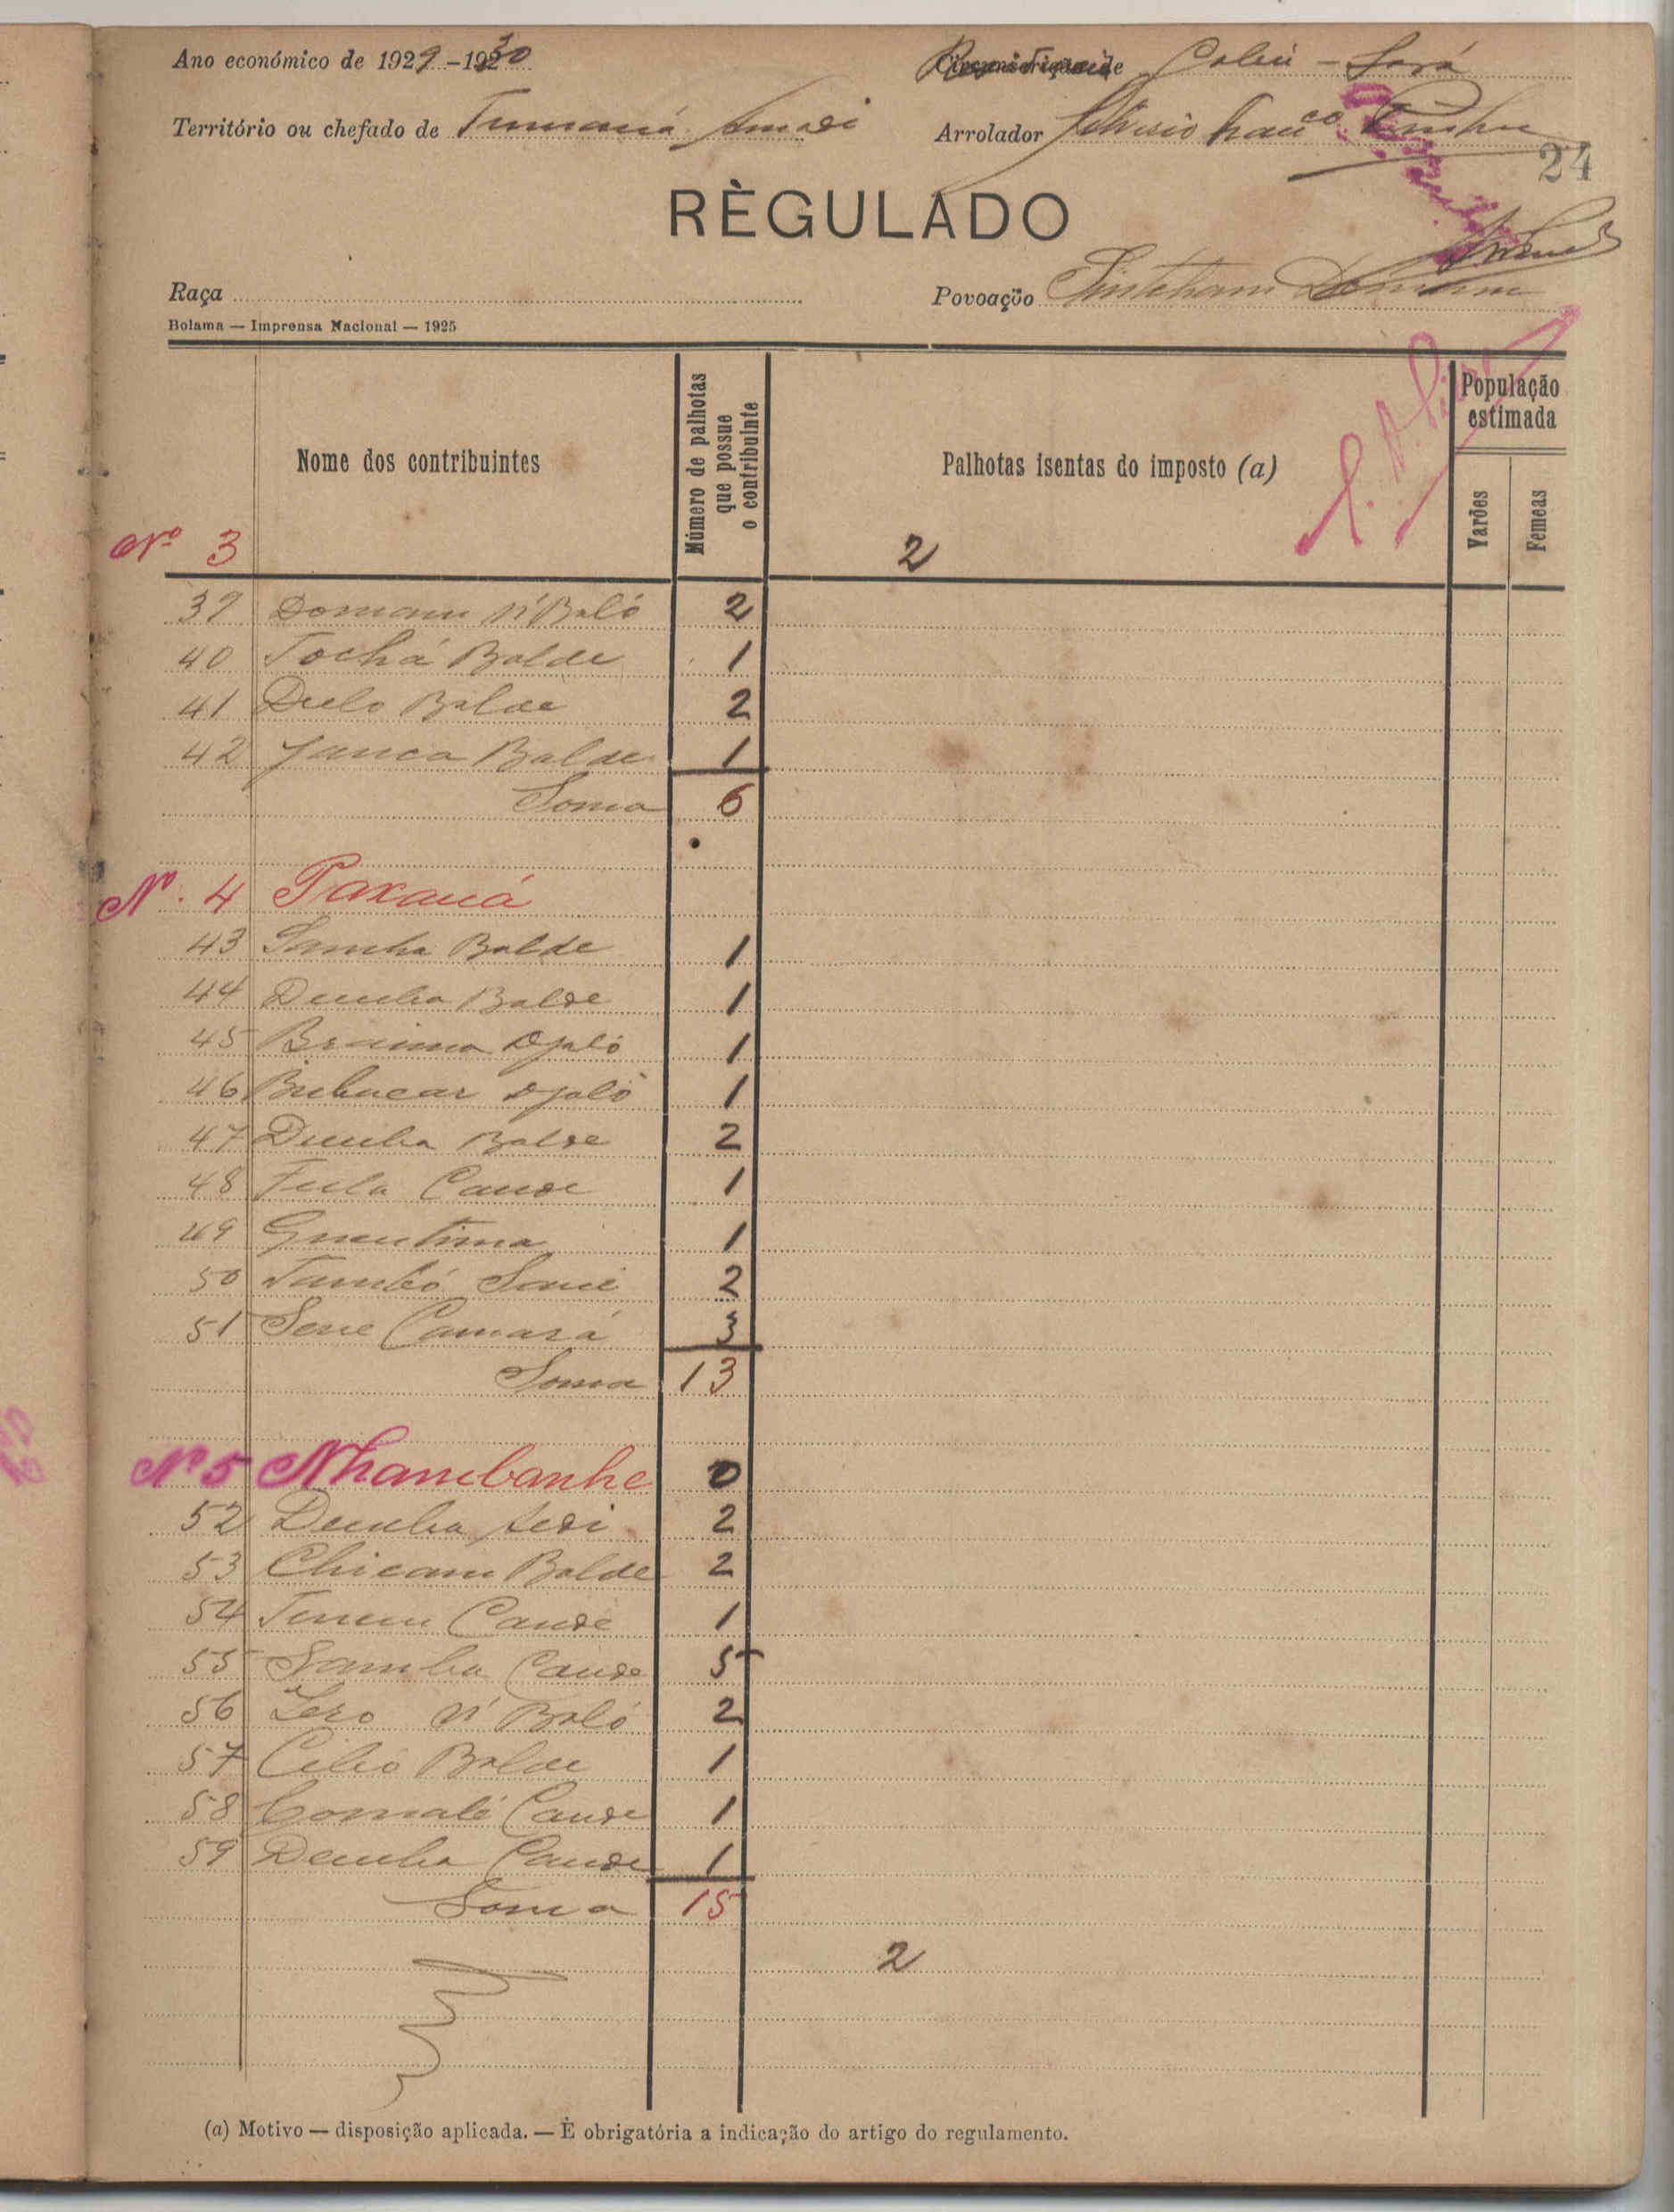 Ano económico de 1929-1930
Coliú - Sará
Território ou chefado de Tumaná
Arrolador
24
RÈGULADO
Raça
Povoação
Bolama — Imprensa Nacional — 1925
Nome dos contribuintes
Número de palhotas que possue o contribuinte
Palhotas isentas do imposto (a)
População estimada
Varões
Femeas
Nº 3
2
39 Domani N'Baló 2
40 Tochá Balde 1
41 Duelo Balde 2
42 Janca Balde 1
Soma 6
Nº. 4 Paxaná
43 Samba Balde 1
44 Demba Balde 1
45 Braima Djaló 1
46 Bubacar Djaló 1
47 Demba Balde 2
48 Fula Cande 1
49 1
50 Tumbó Sané 2
51 Sene Camará 3
Soma 13
Nº 5 Nhambanhe 0
52 Demba 2
53 Chicam Balde 2
54 Cande 1
55 Samba Cande 5
56 N'Baló 2
57 Balde 1
58 Comalé Cande 1
59 Demba Cande 1
Soma 15
2
(a) Motivo — disposição aplicada. — È obrigatória a indicação do artigo do regulamento.